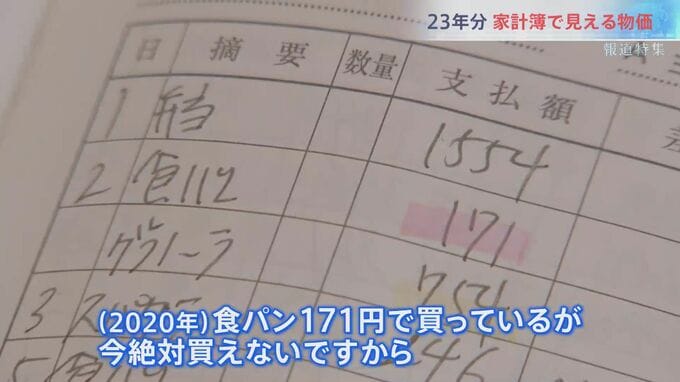 23年分 家計簿で見える物価
報道特集
日 摘要 数量 支払額 差
1 弁当 1554
2 食パン 171
グラノーラ 754
3
5 46
(2020年)食パン171円で買っているが
今絶対買えないですから